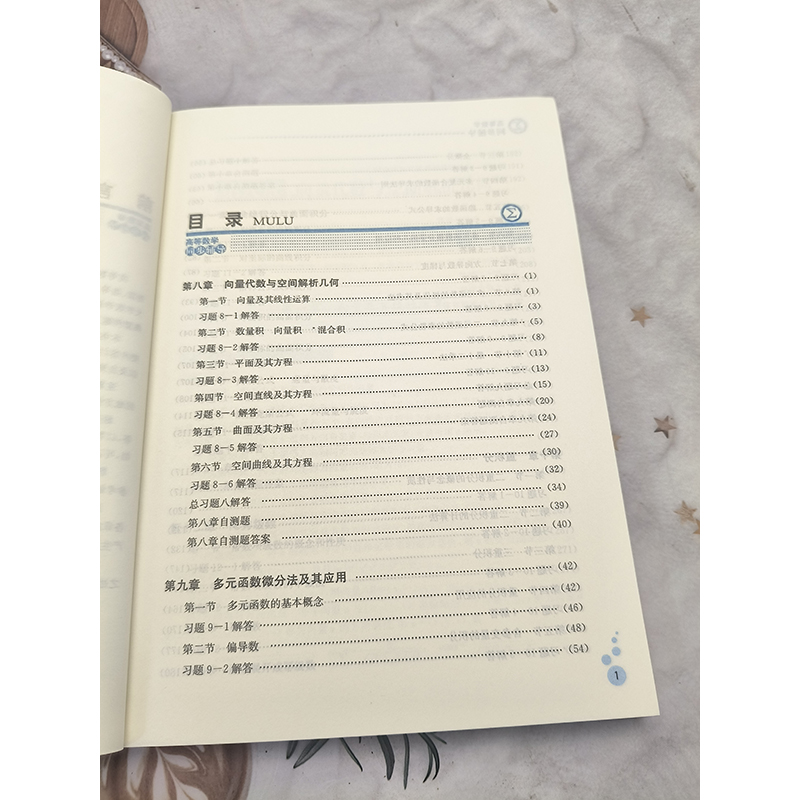 目 录 MULU
高等数学
同步辅导
第八章 向量代数与空间解析几何 (1)
第一节 向量及其线性运算 (1)
习题8-1解答 (3)
第二节 数量积 向量积 *混合积 (5)
习题8-2解答 (8)
第三节 平面及其方程 (11)
习题8-3解答 (13)
第四节 空间直线及其方程 (15)
习题8-4解答 (20)
第五节 曲面及其方程 (24)
习题8-5解答 (27)
第六节 空间曲线及其方程 (30)
习题8-6解答 (32)
总习题八解答 (34)
第八章自测题 (39)
第八章自测题答案 (40)
第九章 多元函数微分法及其应用 (42)
第一节 多元函数的基本概念 (42)
习题9-1解答 (46)
第二节 偏导数 (48)
习题9-2解答 (54)
1